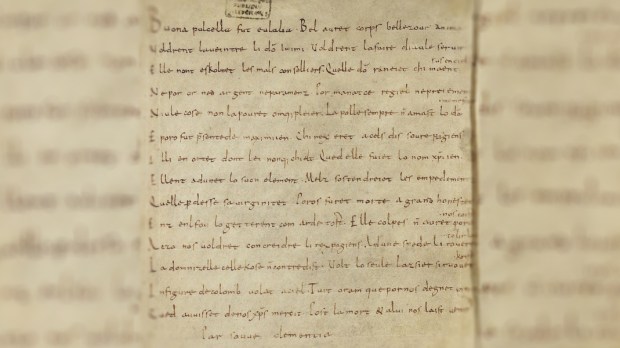 Buona pulcella fut eulalia. Bel auret corps bellezour anima
Voldrent la ueintre li dō inimi. Voldrent la faire diaule seruir
Elle nont eskoltet les mals conselliers. Quelle dō raneiet chi maent sus en ciel
Ne por or ned argent ne paramenz. Por manatce regiel ne preiement
Niule cose non la pouret omq pleier. La polle sempre n̄ amast lo dō
E poro fut p̄sentede maximiien. Chi rex eret a cels dis soure pagiens
Il li enortet dont lei nonq chielt. Qued elle fuiet lo nom xp̄iien
Ellent adunet lo suon element. Melz sostendreiet les empedementz
Quelle perdesse sa uirginitet. Poros furet morte a grand honestet
Enz enl fou lo getterent com arde tost. Elle colpes n̄ auret poro nos coist
Aezo nos uoldret concreidre li rex pagiens. Ad une spede li roueret
La domnizelle celle kose n̄ contredist. Volt lo seule lazsier si ruouet
In figure de colomb uolat a ciel. Tuit oram que por nos degnet
Qued auuisset de nos xp̄s mercit. Post la mort & a lui nos laist uenir
Par souue clementia